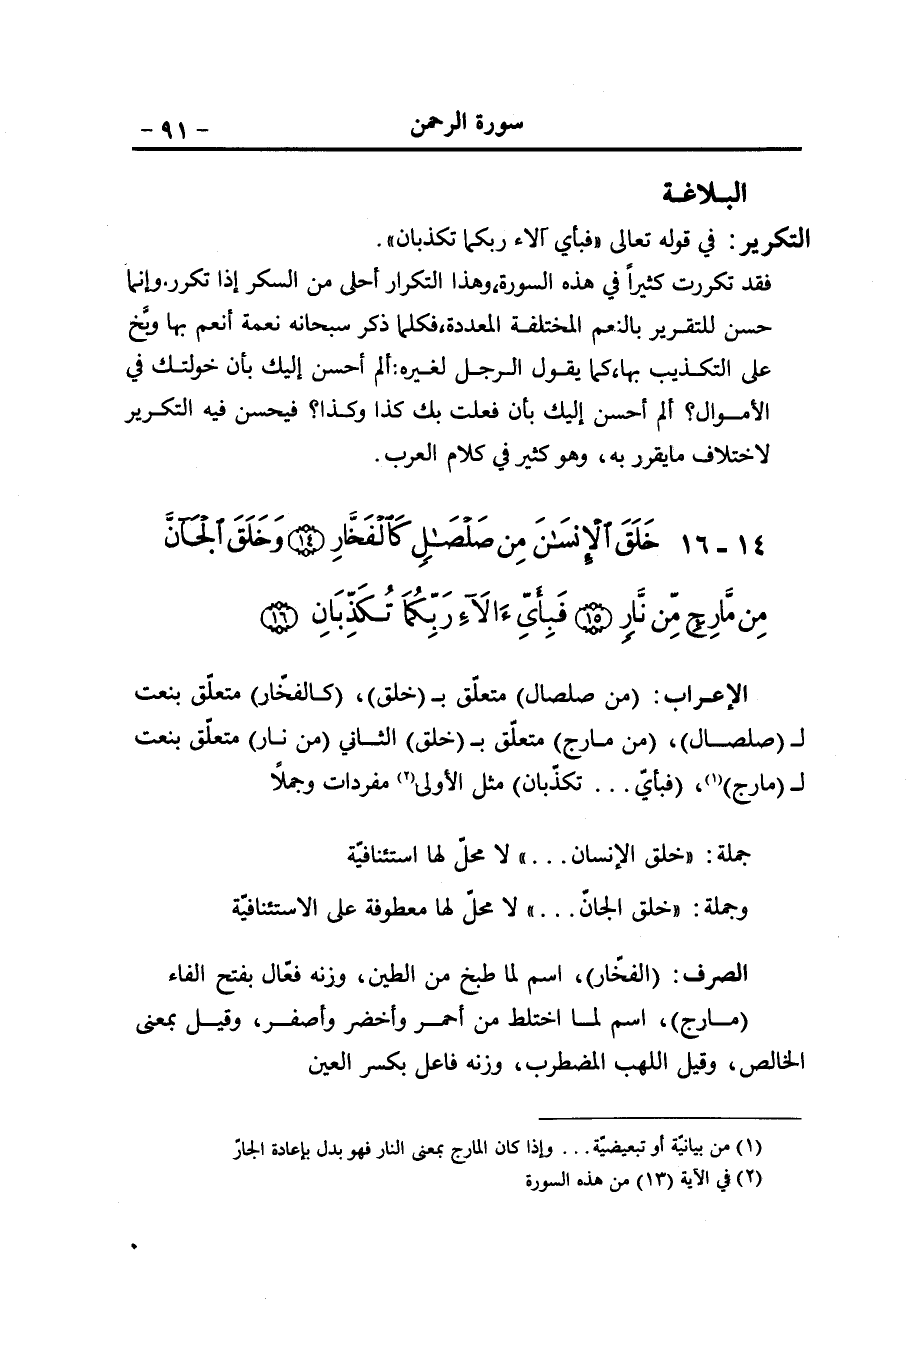 سورة الرحمن
- ٩١ -
البلاغة
التكرير: في قوله تعالى «فبأي آلاء ربكما تكذبان».
فقد تكررت كثيراً في هذه السورة،وهذا التكرار أحلى من السكر إذا تكرر.وإنما
حسن للتقرير بالنعم المختلفة المعددة،فكلما ذكر سبحانه نعمة أنعم بها وبَّخ
على التكذيب بها،كما يقول الرجل لغيره:ألم أحسن إليك بأن خولتك في
الأموال؟ ألم أحسن إليك بأن فعلت بك كذا وكذا؟ فيحسن فيه التكرير
لاختلاف مايقرر به، وهو كثير في كلام العرب.
١٤ - ١٦ خَلَقَ ٱلْإِنسَٰنَ مِن صَلْصَٰلٍ كَٱلْفَخَّارِ ١٤ وَخَلَقَ ٱلْجَآنَّ
مِن مَّارِجٍ مِّن نَّارٍ ١٥ فَبِأَىِّ ءَالَآءِ رَبِّكُمَا تُكَذِّبَانِ ١٦
الإعراب: (من صلصال) متعلّق بـ(خلق)، (كالفخّار) متعلّق بنعت
لـ (صلصال)، (من مارج) متعلّق بـ(خلق) الثاني (من نار) متعلّق بنعت
لـ (مارج)(١)، (فبأيّ... تكذّبان) مثل الأولى(٢) مفردات وجملاً
جملة: «خلق الإنسان...» لا محلّ لها استئنافيّة
وجملة: «خلق الجانّ...» لا محلّ لها معطوفة على الاستئنافيّة
الصرف: (الفخّار)، اسم لما طبخ من الطين، وزنه فعّال بفتح الفاء
(مارج)، اسم لما اختلط من أحمر وأخضر وأصفر، وقيل بمعنى
الخالص، وقيل اللهب المضطرب، وزنه فاعل بكسر العين
(١) من بيانيّة أو تبعيضيّة... وإذا كان المارج بمعنى النار فهو بدل بإعادة الجارّ
(٢) في الآية (١٣) من هذه السورة